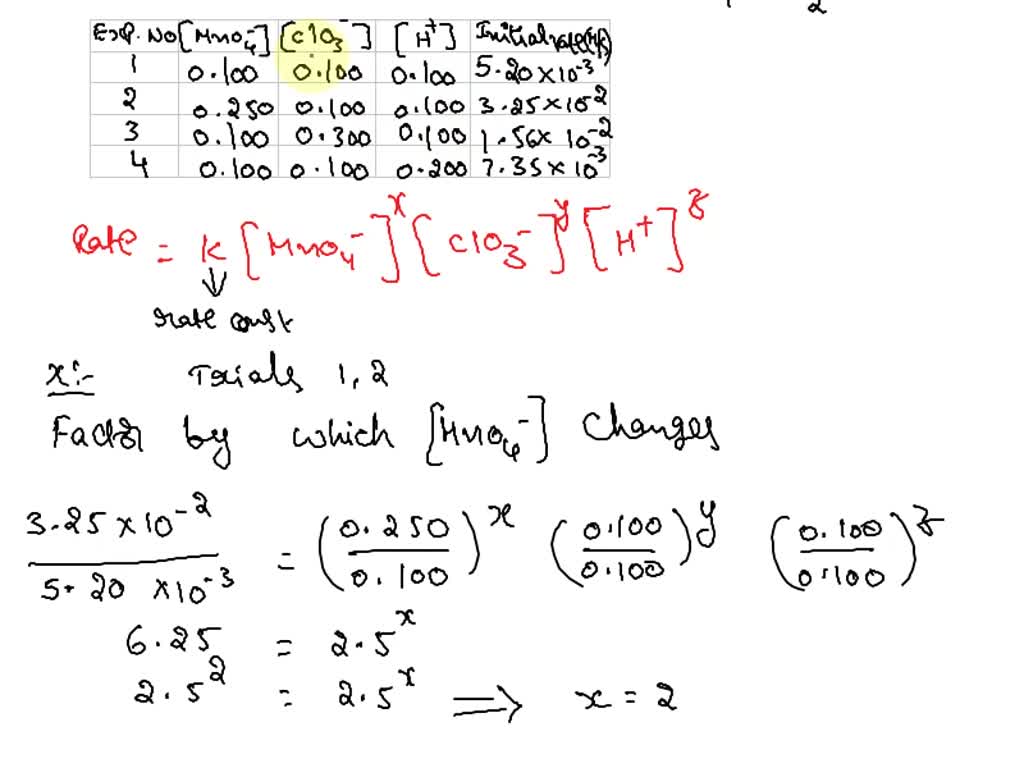 2
Exp. No [MnO4-] [ClO3-] [H+] Initial rate(M/s)
1 0.100 0.100 0.100 5.20×10-3
2 0.250 0.100 0.100 3.25×10-2
3 0.100 0.300 0.100 1.56×10-2
4 0.100 0.100 0.200 7.35×10-3
Rate = K [MnO4-]x [ClO3-]y [H+]z
↓
rate const
x:- Trials 1, 2
Factor by which [MnO4-] changes
3.25×10-2 / 5.20×10-3 = (0.250/0.100)x (0.100/0.100)y (0.100/0.100)z
6.25 = 2.5x
2.52 = 2.5x ⟹ x = 2